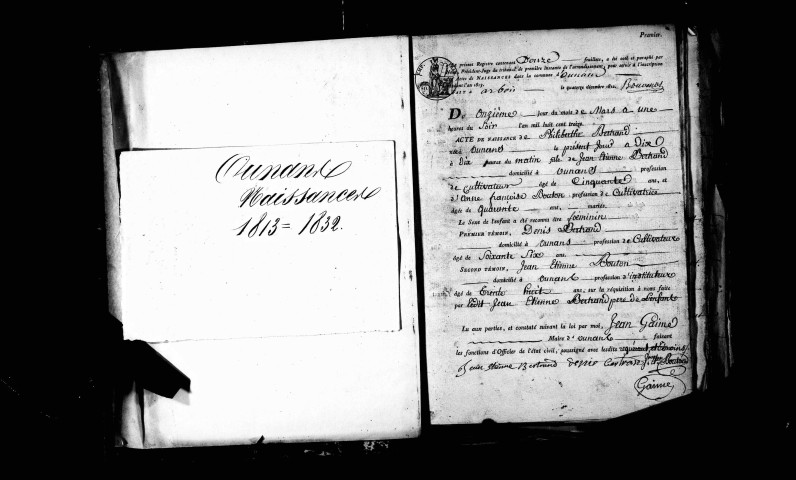 Ounans
Naissances
1813 = 1832.
Premier.
Le présent Registre contenant Douze feuillets, a été coté et paraphé par
Président-Juge du tribunal de première instance de l'arrondissement, pour servir à l'inscription
des Actes de NAISSANCES dans la commune d'Ounans
pendant l'an 1813.
Fait à arbois le quatorze décembre 1812.
Du Onzieme Jour du mois de Mars a une
heures du Soir l'an mil huit cent treize.
ACTE DE NAISSANCE de Philiberthe Bertrand
née à Ounans le présent Jour a Dix
à dix heures du matin fille de Jean Etienne Bertrand
domicilié à Ounans profession
de cultivateur âgé de Cinquante ans, et
d'Anne françoise Bouton profession de Cultivatrice
âgée de Quarente ans, mariés.
Le Sexe de l'enfant a été reconnu être foeminin
PREMIER TÉMOIN, Denis Bertrand
domicilié à Ounans profession de Cultivateur
âgé de Soixante Six ans.
SECOND TÉMOIN, Jean Etienne Bouton
domicilié à Ounans profession d'institituteur
âgé de trente huit ans, sur la réquisition à nous faite
par ledit Jean Etienne Bertrand pere de L'enfant
Lu aux parties, et constaté suivant la loi par moi, Jean Gaime
Maire d'ounans faisant
les fonctions d'Officier de l'état civil, soussigné avec lesdits requérant, et témoins
jean etienne Bertrand denis Bertrand J. Ete Bouton
Gaime